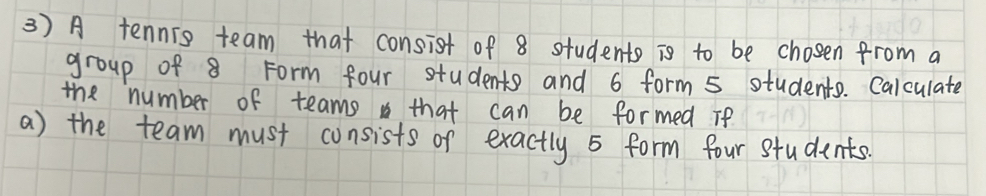 3) A tennis team that consist of 8 students is to be chosen from a
group of 8 Form four students and 6 form 5 students. Calculate
the number of teams that can be formed if
a) the team must consists of exactly 5 form four students.